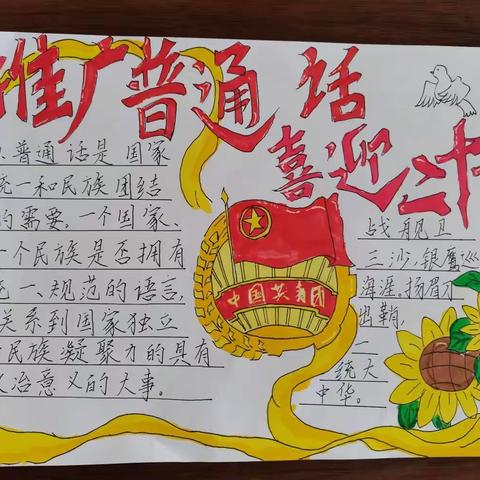 推广普通话
喜迎二十
普通话是国家
统一和民族团结
的需要。一个国家、
一个民族是否拥有
统一、规范的语言,
关系到国家独立
民族凝聚力的具有
政治意义的大事。
中国共青团
战舰卫
三沙,银鹰巡
海涯。扬眉刀
出鞘,
一
统大
中华。